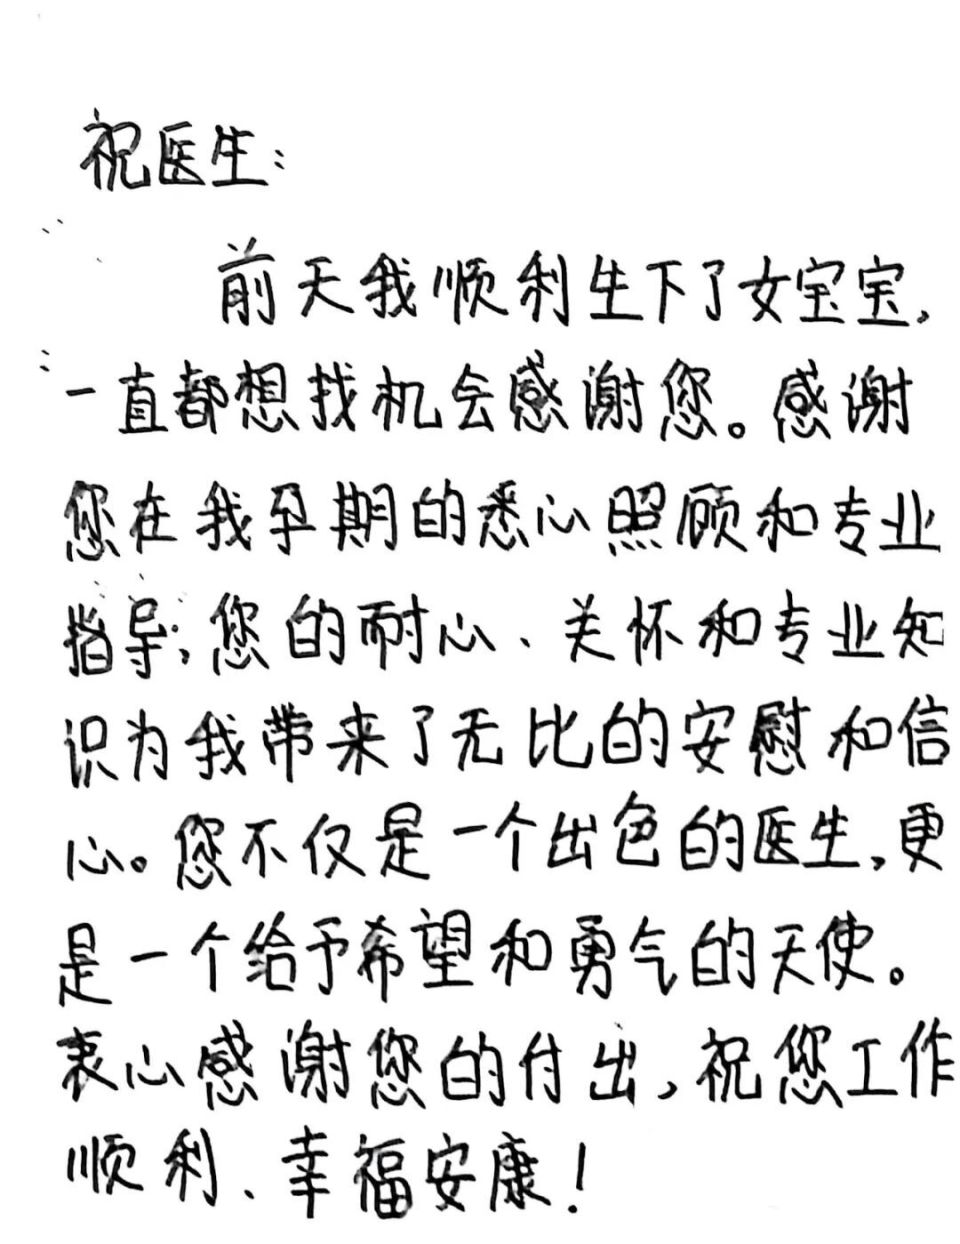 祝医生：
前天我顺利生下了女宝宝，
一直都想找机会感谢您。感谢
您在我孕期的悉心照顾和专业
指导；您的耐心、关怀和专业知
识为我带来了无比的安慰和信
心。您不仅是一个出色的医生，更
是一个给予希望和勇气的天使。
衷心感谢您的付出，祝您工作
顺利、幸福安康！